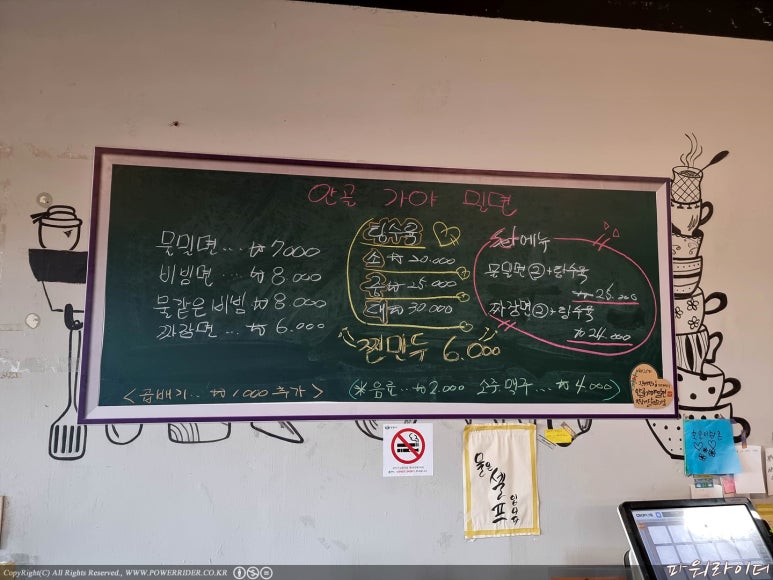 안골 가야 밀면
물밀면 ... ₩ 7000
비빔면 ... ₩ 8.000
물같은 비빔 ₩ 8.000
짜장면 ... ₩ 6.000
<곱배기... ₩ 1000 추가>
탕수육
소 ₩ 20.000
중 ₩ 25.000
대 ₩ 30.000
찐만두 6.000
(※음료 ₩ 2000 소주 맥주... ₩ 4000)
메뉴
물밀면②+탕수육
₩ 26.000
짜장면②+탕수육
₩ 24.000
물은
셀프
입니다
CopyRight(C) All Rights Reserved., WWW.POWERRIDER.CO.KR
파워라이더